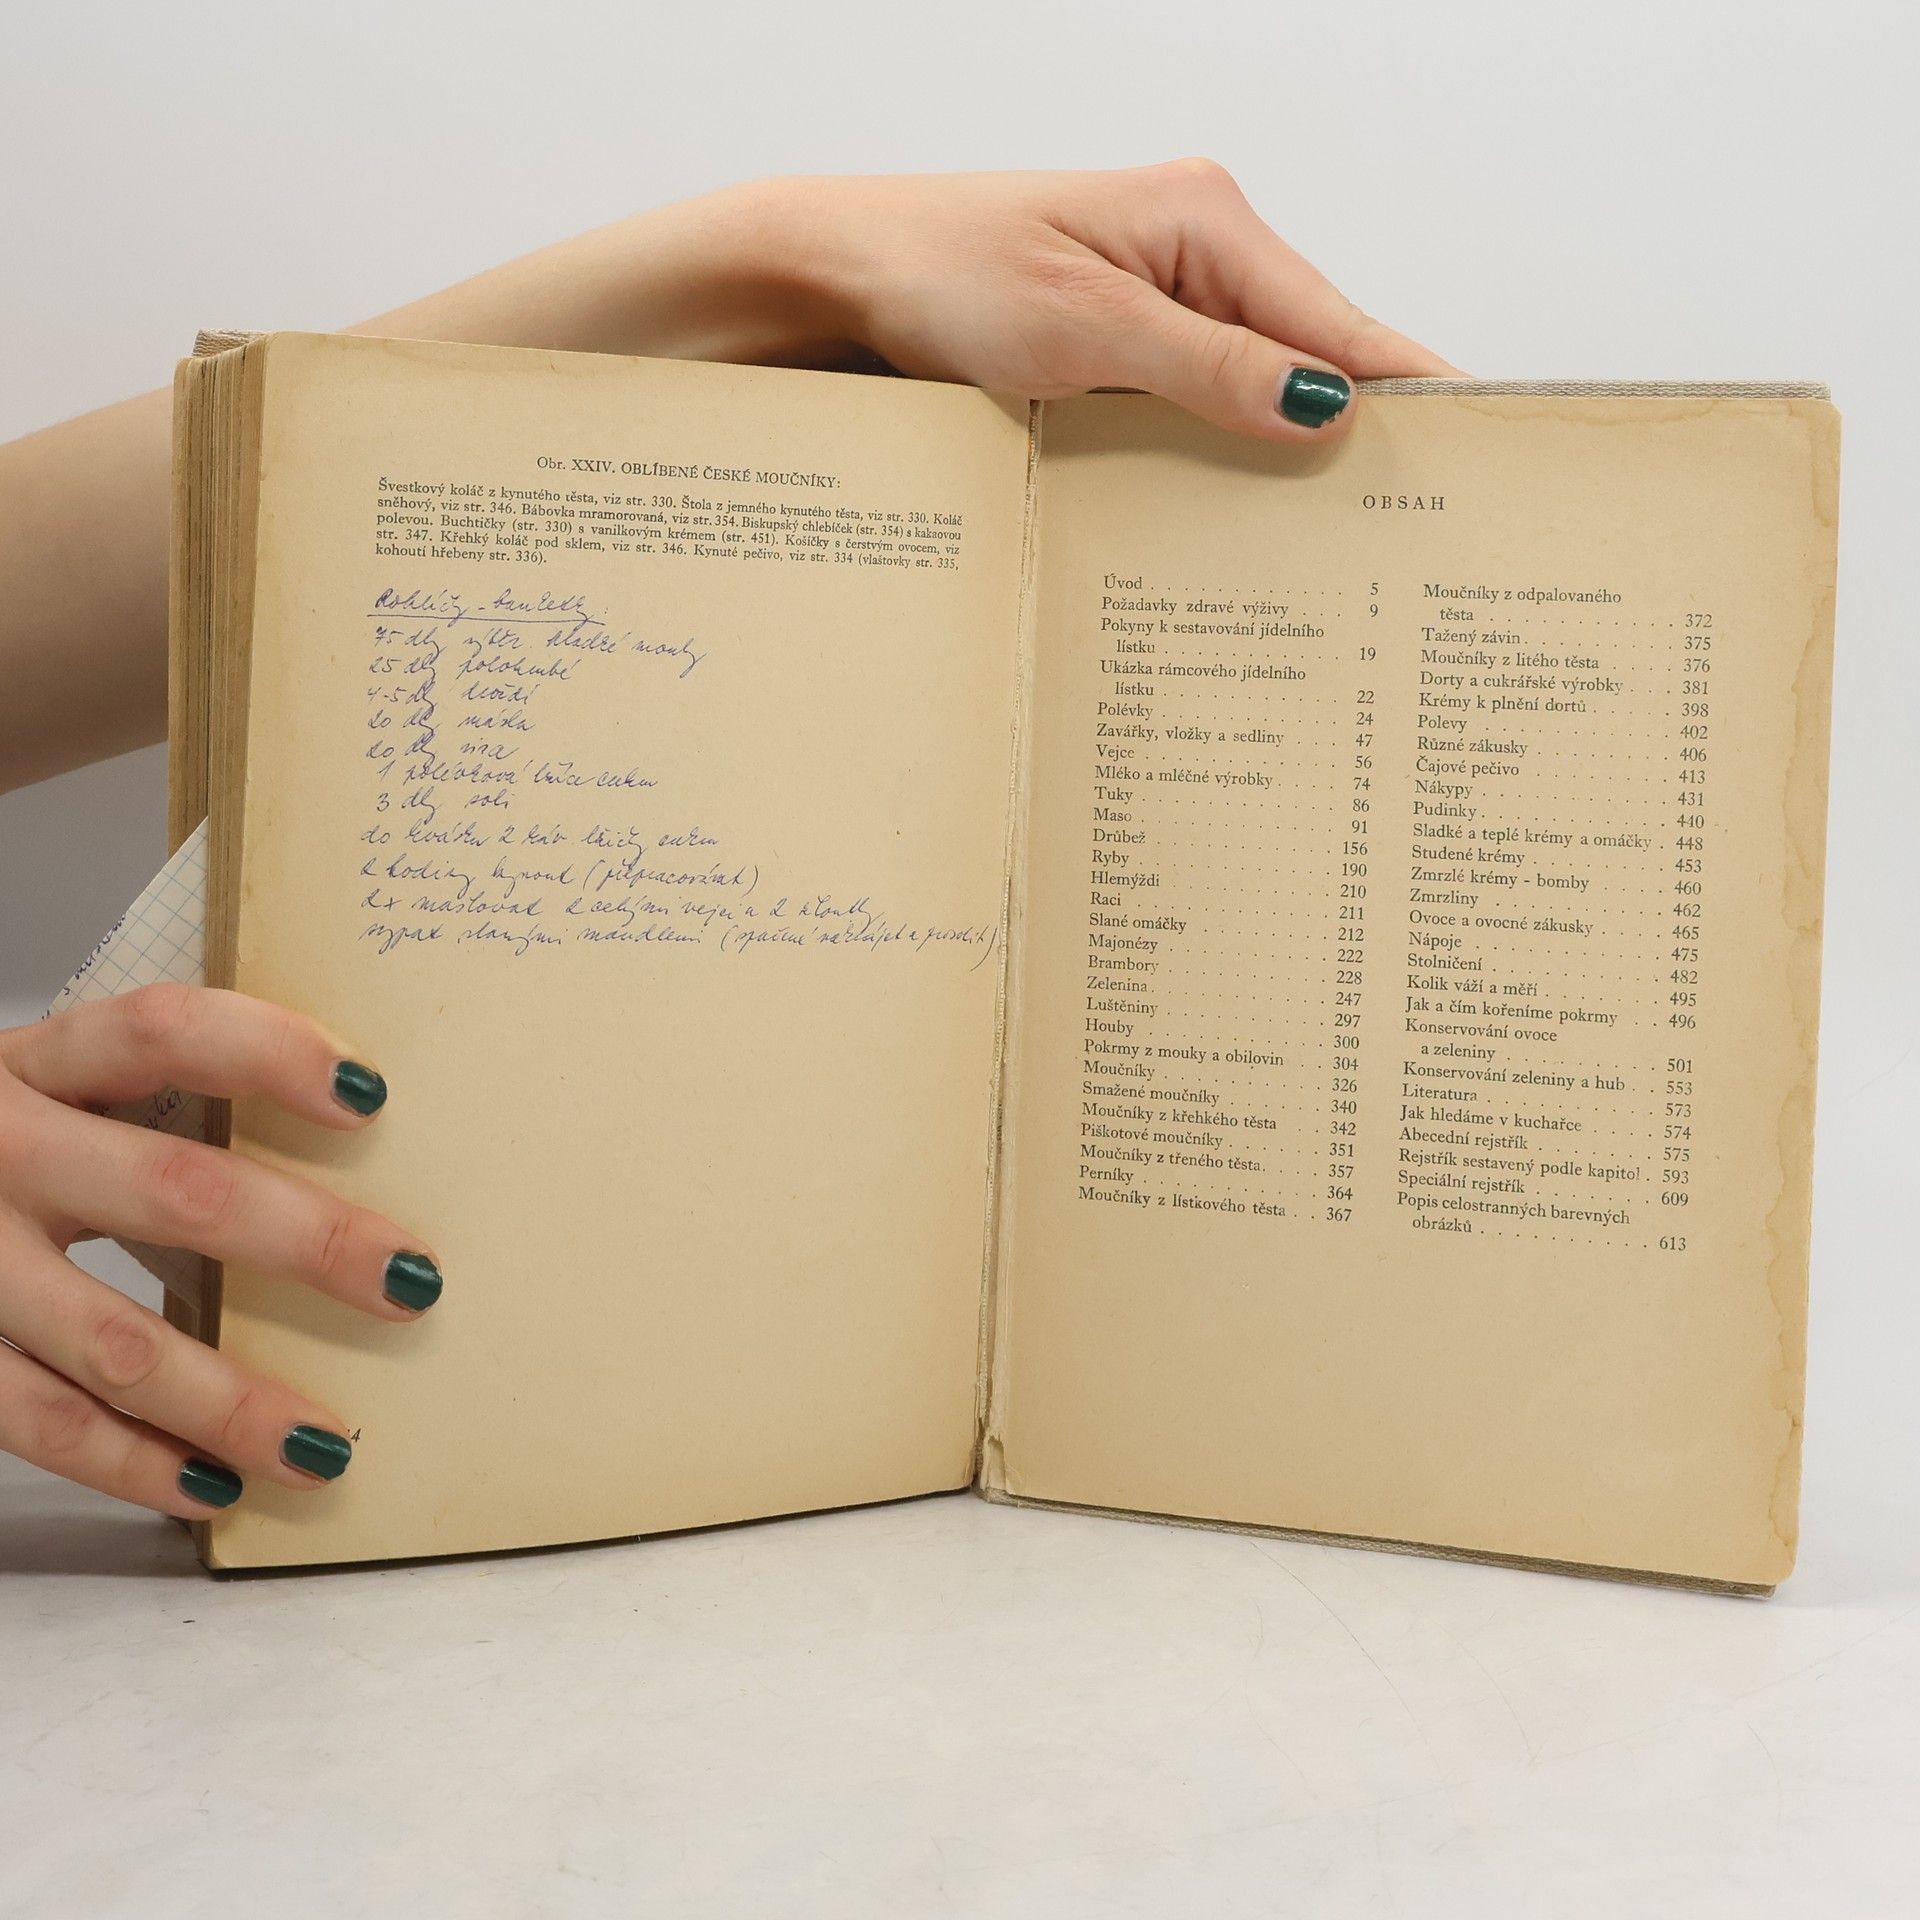 Obr. XXIV. OBLÍBENÉ ČESKÉ MOUČNÍKY:
Švestkový koláč z kynutého těsta, viz str. 330. Štola z jemného kynutého těsta, viz str. 330. Koláč
sněhový, viz str. 346. Bábovka mramorovaná, viz str. 354. Biskupský chlebíček (str. 354) s kakaovou
polevou. Buchtičky (str. 330) s vanilkovým krémem (str. 451). Košíčky s čerstvým ovocem, viz
str. 347. Křehký koláč pod sklem, viz str. 346. Kynuté pečivo, viz str. 334 (vlaštovky str. 335,
kohoutí hřebeny str. 336).
75 dkg výběr. hladké mouky
25 dkg polohrubé
4-5 dkg droždí
20 dkg másla
20 dkg
1 polévková lžíce cukru
3 dkg soli
do kvásku 2 káv. lžičky cukru
2 hodiny kynout (přepracovávat)
2x maslovat 2 celými vejci a 2 žloutky
sypat slanými mandlemi (spařené nakrájet a prosolit)
4
OBSAH
Úvod . . . 5
Požadavky zdravé výživy . . . 9
Pokyny k sestavování jídelního
lístku . . . 19
Ukázka rámcového jídelního
lístku . . . 22
Polévky . . . 24
Zavářky, vložky a sedliny . . . 47
Vejce . . . 56
Mléko a mléčné výrobky . . . 74
Tuky . . . 86
Maso . . . 91
Drůbež . . . 156
Ryby . . . 190
Hlemýždi . . . 210
Raci . . . 211
Slané omáčky . . . 212
Majonézy . . . 222
Brambory . . . 228
Zelenina . . . 247
Luštěniny . . . 297
Houby . . . 300
Pokrmy z mouky a obilovin . . 304
Moučníky . . . 326
Smažené moučníky . . . 340
Moučníky z křehkého těsta . . 342
Piškotové moučníky . . . 351
Moučníky z třeného těsta . . . 357
Perníky . . . 364
Moučníky z lístkového těsta . . 367
Moučníky z odpalovaného
těsta . . . 372
Tažený závin . . . 375
Moučníky z litého těsta . . . 376
Dorty a cukrářské výrobky . . . 381
Krémy k plnění dortů . . . 398
Polevy . . . 402
Různé zákusky . . . 406
Čajové pečivo . . . 413
Nákypy . . . 431
Pudinky . . . 440
Sladké a teplé krémy a omáčky . 448
Studené krémy . . . 453
Zmrzlé krémy - bomby . . . 460
Zmrzliny . . . 462
Ovoce a ovocné zákusky . . . 465
Nápoje . . . 475
Stolničení . . . 482
Kolik váží a měří . . . 495
Jak a čím kořeníme pokrmy . . 496
Konservování ovoce
a zeleniny . . . 501
Konservování zeleniny a hub . . 553
Literatura . . . 573
Jak hledáme v kuchařce . . . 574
Abecední rejstřík . . . 575
Rejstřík sestavený podle kapitol . 593
Speciální rejstřík . . . 609
Popis celostranných barevných
obrázků . . . 613